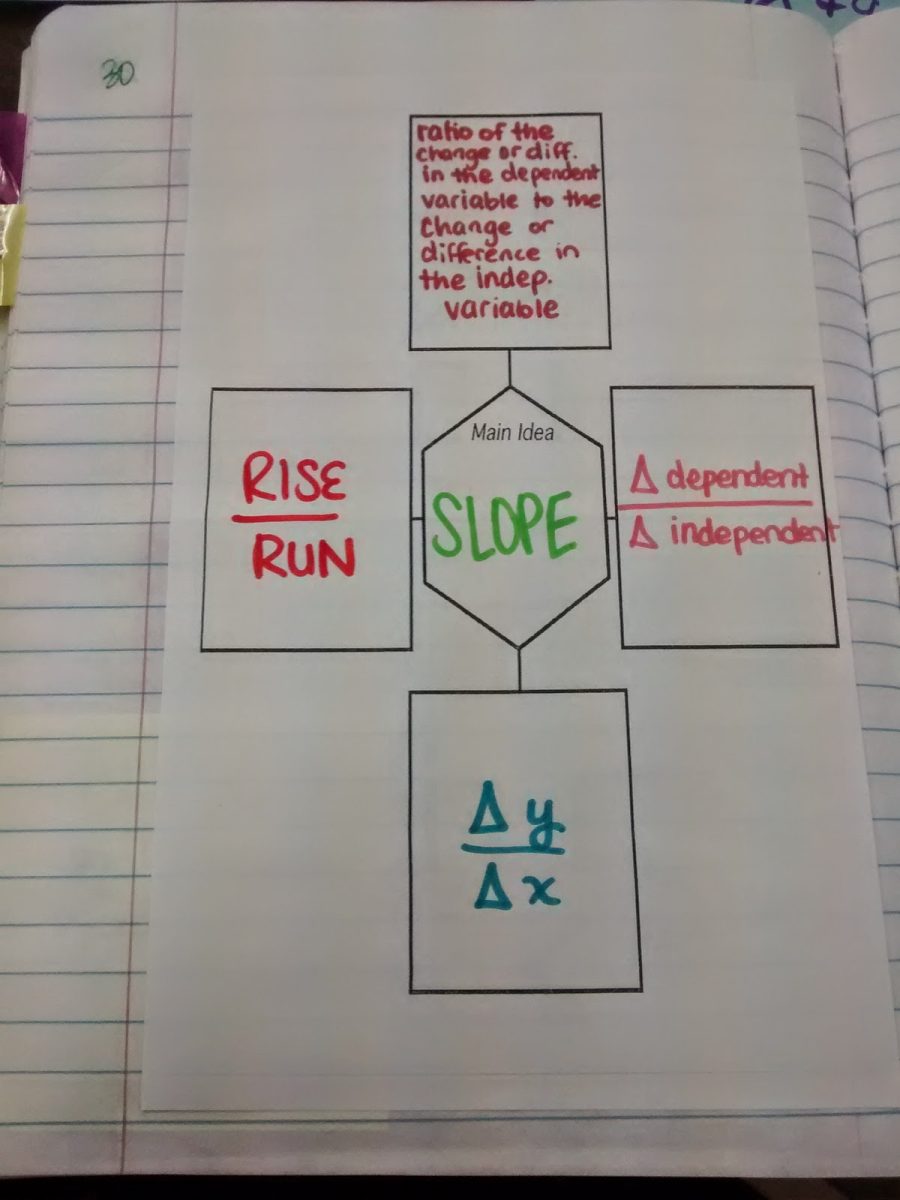 30
ratio of the
change or diff.
in the dependent
variable to the
change or
difference in
the indep.
variable
Main Idea
SLOPE
RISE
RUN
Δ dependent
Δ independent
Δ y
Δ x